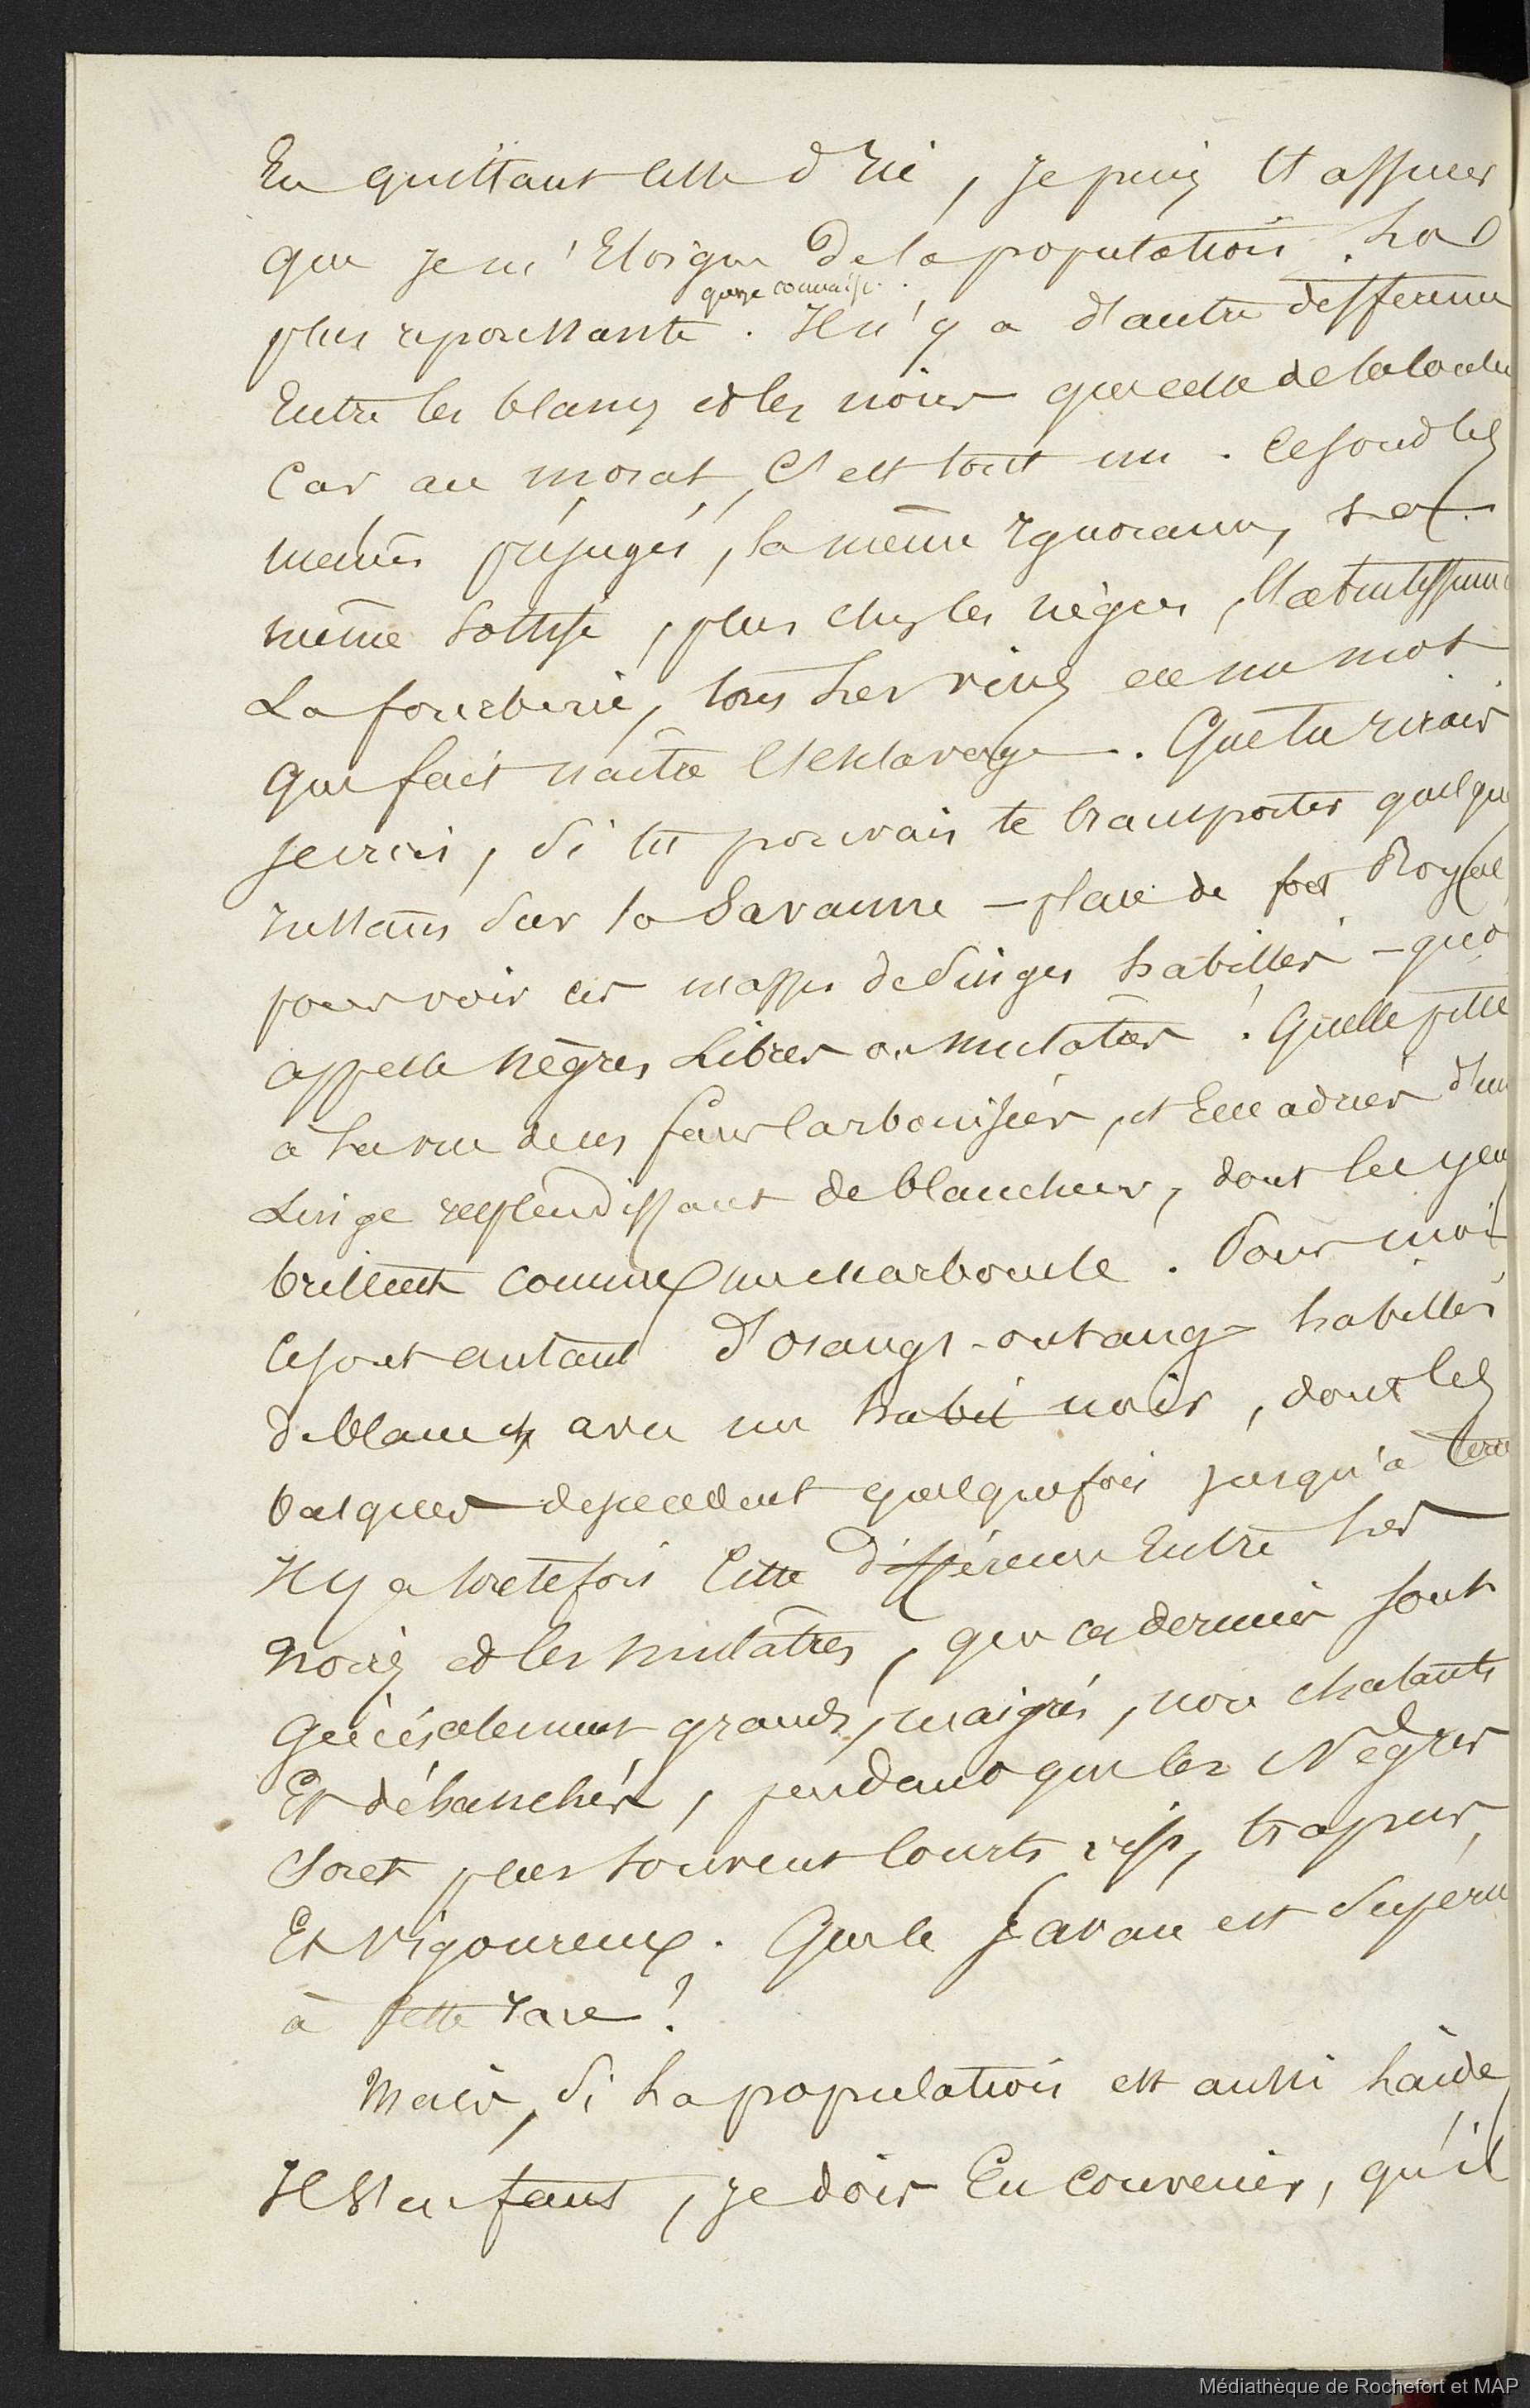 En quittant celle d'ici, je puis t'assurer
que je m'éloigne de la population la
plus repoussante que je connaisse. Il n'y a d'autre différence
Entre les blancs et les noirs que celle de la couleur
Car au moral, c'est tout un. Ce sont les
mêmes préjugés, la même ignorance, la
même sottise, plus chez les nègres, l'abrutissement
La fourberie, tous les vices en un mot
que fait naître l'esclavage. Que tu rirais
, si tu pouvais te transporter quelques
instants sur la Savanne – place de fort Royal
pour voir ces masses de singes habillés – qu'on
appelle nègres libres ou mulâtres! Quelle pitié
à la vue de ces faces carbonisées, et encadrées d'un
Linge resplendissant de blancheur, dont les yeux
brillent comme une escarboucle. Pour moi
Ce sont autant d'orangs-outangs habillés
de blancs, avec un habit noir, dont les
basques descendent quelquefois jusqu'à terre
Il y a toutefois cette différence entre les
noirs et les mulâtres, que ces derniers sont
généralement grands, maigres, nonchalants
Et déhanchés, pendant que les Nègres
Sont plus souvent courts, trapus,
Et vigoureux. Que le Javan est supérieur
à cette race!
Mais, si la population est aussi laide,
Il s'en faut, je dois en convenir, qu'il
Médiathèque de Rochefort et MAP